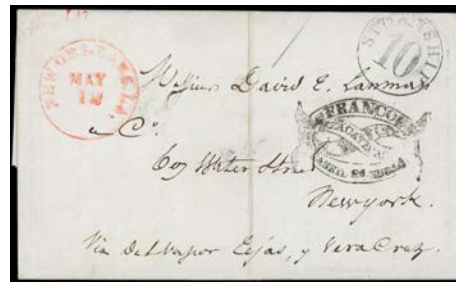 NEW ORLEANS LA.
MAY
STEAMSHIP
10
Messieurs David E. Lanman
a Co.
FRANCO EN
ZACATECAS
69 Water Street
ABRIL 26
New york.
Via del Vapor Tejas, y Vera Cruz.